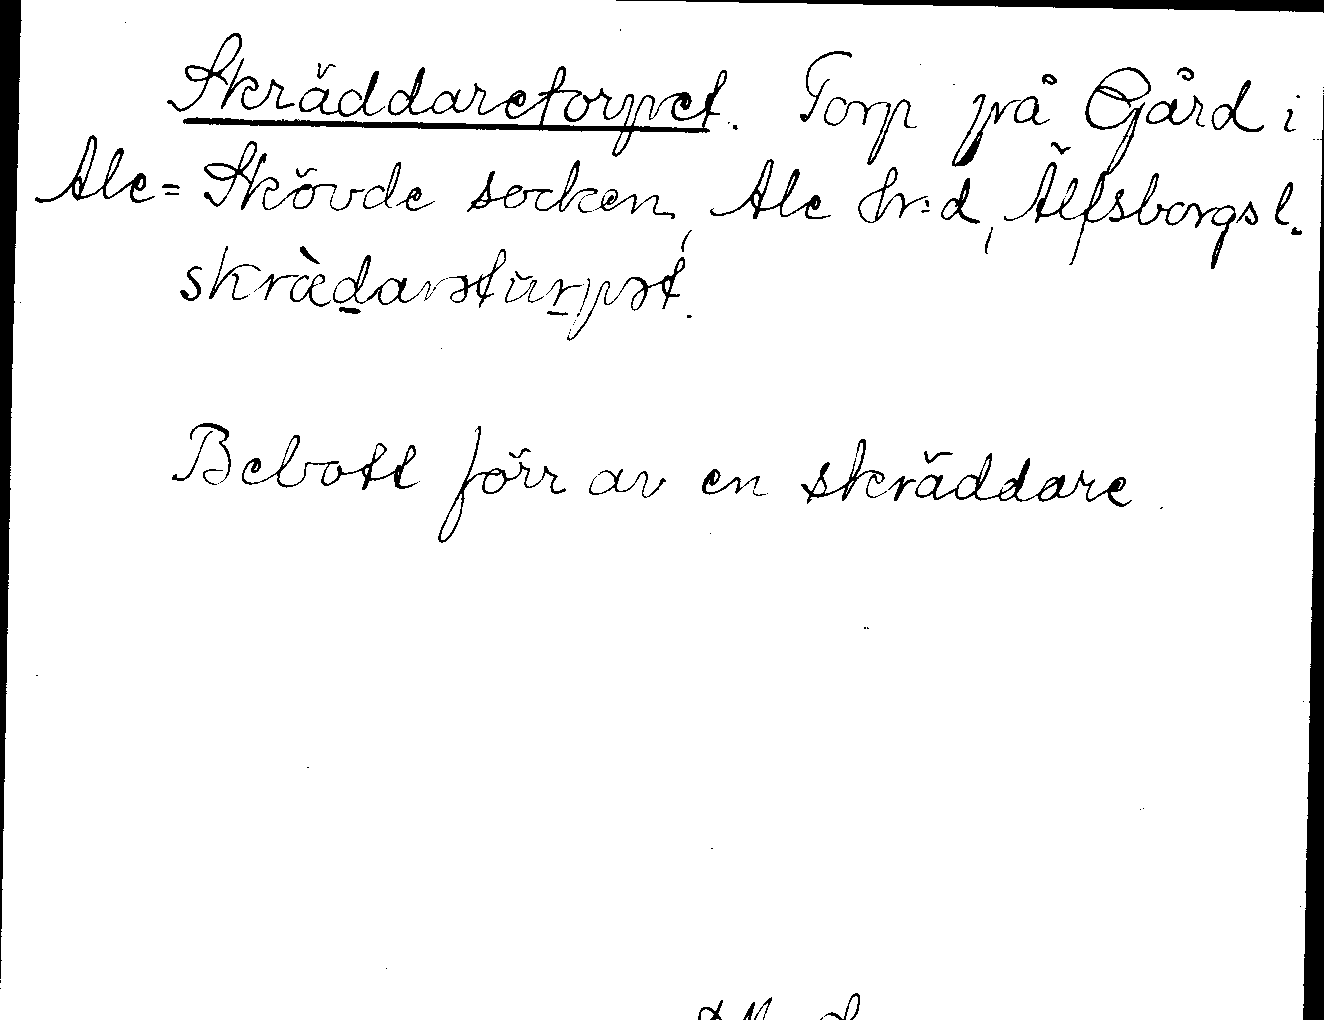 Skräddaretorpet. Torp på Gård i
Ale=Skövde socken, Ale hr:d, Älfsborgs l.
skrædarəturpət.
Bebott förr av en skräddare.